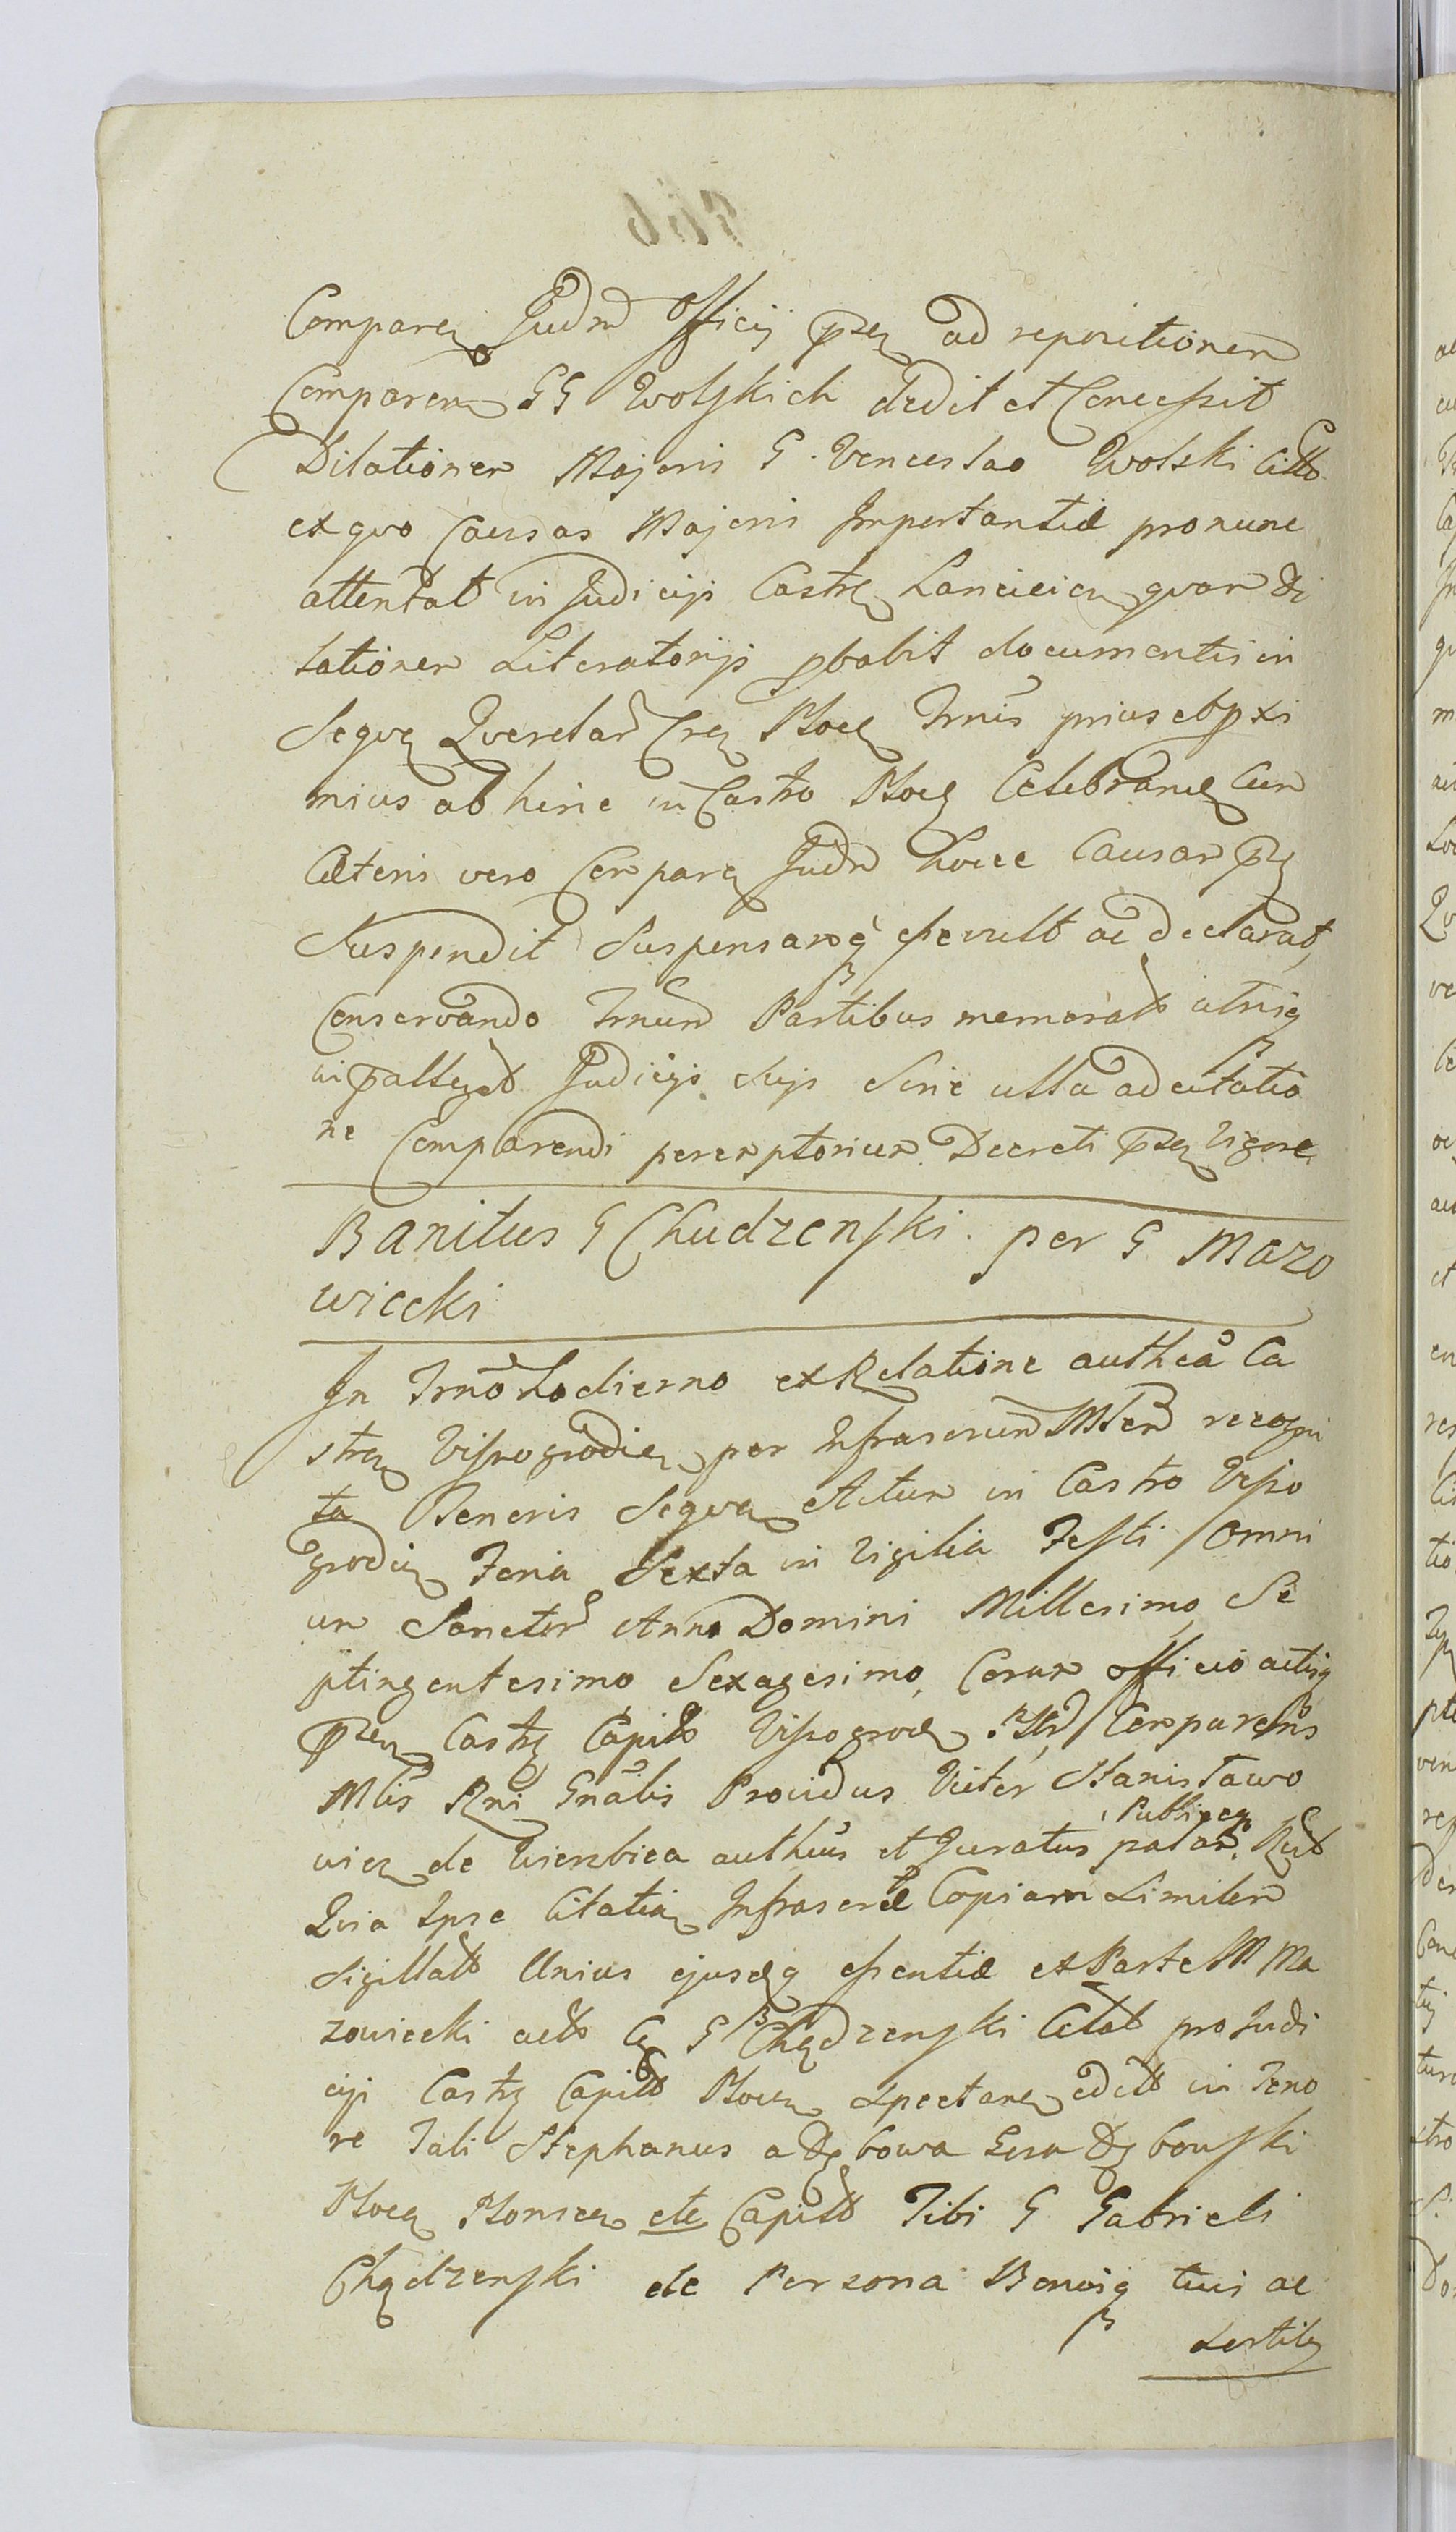 Comparen Judm Officij psen ad repositionem
Comparen GG Wolskich dedit et Concessit
Dilationem Majoris G. Venceslao Wolski Citto
ex quo Causas Majoris Importantiæ pro nunc
attentat in Judicijs Castren Lancicien quam Di
lationem Literatorijs pbabit documentis in
Seqven Querelar Cren Plocen Trnis prius et pxi
mius ab hinc in Castro Plocen Celebrand Cum
Cæteris vero Comparen Judm hocce Causam psen
Suspendit Suspensamq esse vult ac declarat,
Conservando Trnum Partibus memoratis utrisq
in pallegat Judicijs suis Sine ulla adcitatio
ne Comparendi peremptorium Decreti psen Vigore
Banitus G Chudzenski per G Mazo
wiecki
In Trno hodierno ex Relatione authca Ca
stren Vissogrodien per Infrascrum Mlem recogni
ta Tenoris Seqven Actum in Castro Visso
grodien Feria Sexta in Vigilia Festi Omni
um Sanctor Anno Domini Millesimo Se
ptingentesimo Sexagesimo, Coram officio actisq
psen Castren Capitlo Vissogrod Comparens
Mlis Rni Gnalis Providus Victor Stanisławo
wicz de Wierzbica authus et Juratus Publiceq palam Rect
Quia Ipse Citatia Infrascræ Copiam Similem
Sigillato Unius ejusdq essentiæ ex Parte M Ma
zowiecki acto G Chądzenski Citat pro Judi
cijs Castren Capitlo Plocen Spectan edito in Teno
re Tali Stephanus a Dębowa Gora Dębowski
Plocen Plonscen etc Capito Tibi G Gabrieli
Chądzenski de Persona Bonisq tuis ac
Sortibq